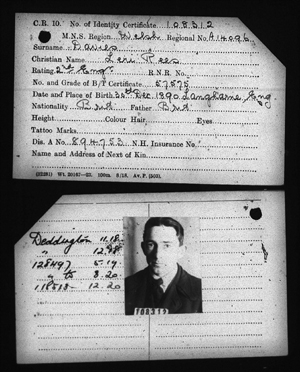 C.R. 10. No. of Identity Certificate 108312
M.N.S. Region Welsh Regional No. A14096
Surname Davies
Christian Name Levi Rees
Rating 2nd Eng. R.N.R. No.
No. and Grade of B/T Certificate 57575
Date and Place of Birth 30th Dec. 1890 Langharne Eng.
Nationality Brd Father Brd
Height Colour Hair, Eyes
Tattoo Marks
Dis. A No. 894753 N.H. Insurance No.
Name and Address of Next of Kin
Deddington 11.18
" 12.98
128497 5.19
" to 3.20
118513 12.20
108312